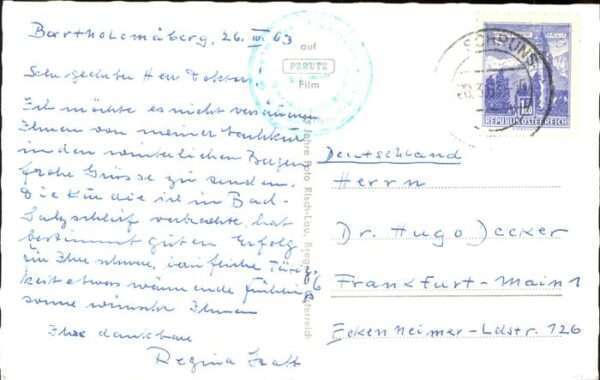 Bartholomäberg, 26. III. 63
Sehr geehrter Herr Doktor.
Ich möchte es nicht versäumen
Ihnen von meiner Nachkur
in den winterlichen Bergen
frohe Grüsse zu senden.
Die Kur die ich in Bad-
Salzschlirf verbrachte, hat
bestimmt guten Erfolg
für Ihre schwere,
keit etwas wärmende Frühlings
sonne wünscht Ihnen
Ihre dankbare
Regina
auf
PERUTZ
Film
Foto Risch-Lau, Bregenz
Österreich
SCHRUNS
REPUBLIK ÖSTERREICH
Deutschland
Herrn
Dr. Hugo Decker
6 Frankfurt-Main 1
Eckenheimer-Ldstr. 126